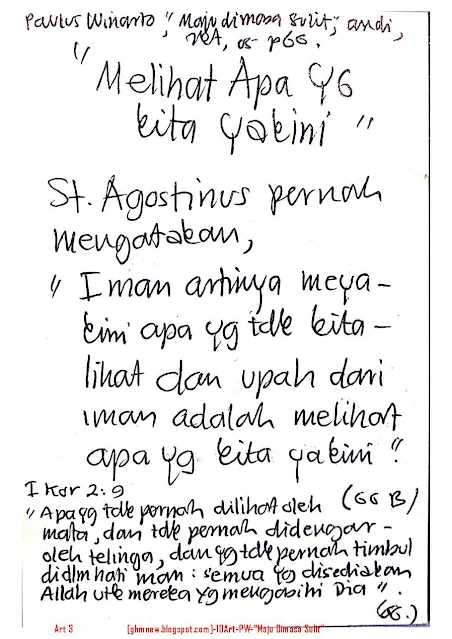 Paulus Winarto, "Maju dimasa sulit", andi,
05 p66.
"Melihat Apa yg
kita yakini"
St. Agostinus pernah
mengatakan,
"Iman artinya meya-
kini apa yg tdk kita-
lihat dan upah dari
iman adalah melihat
apa yg kita yakini".
I Kor 2:9
(66 B)
"Apa yg tdk pernah dilihat oleh
mata, dan tdk pernah didengar-
oleh telinga, dan yg tdk pernah timbul
didlm hati man: semua yg disediakan
Allah utk mereka yg mengasihi Dia".
(66.)
Art 3 [ghmnew.blogspot.com]-IDArt-PW-"Maju Dimasa Sulit"